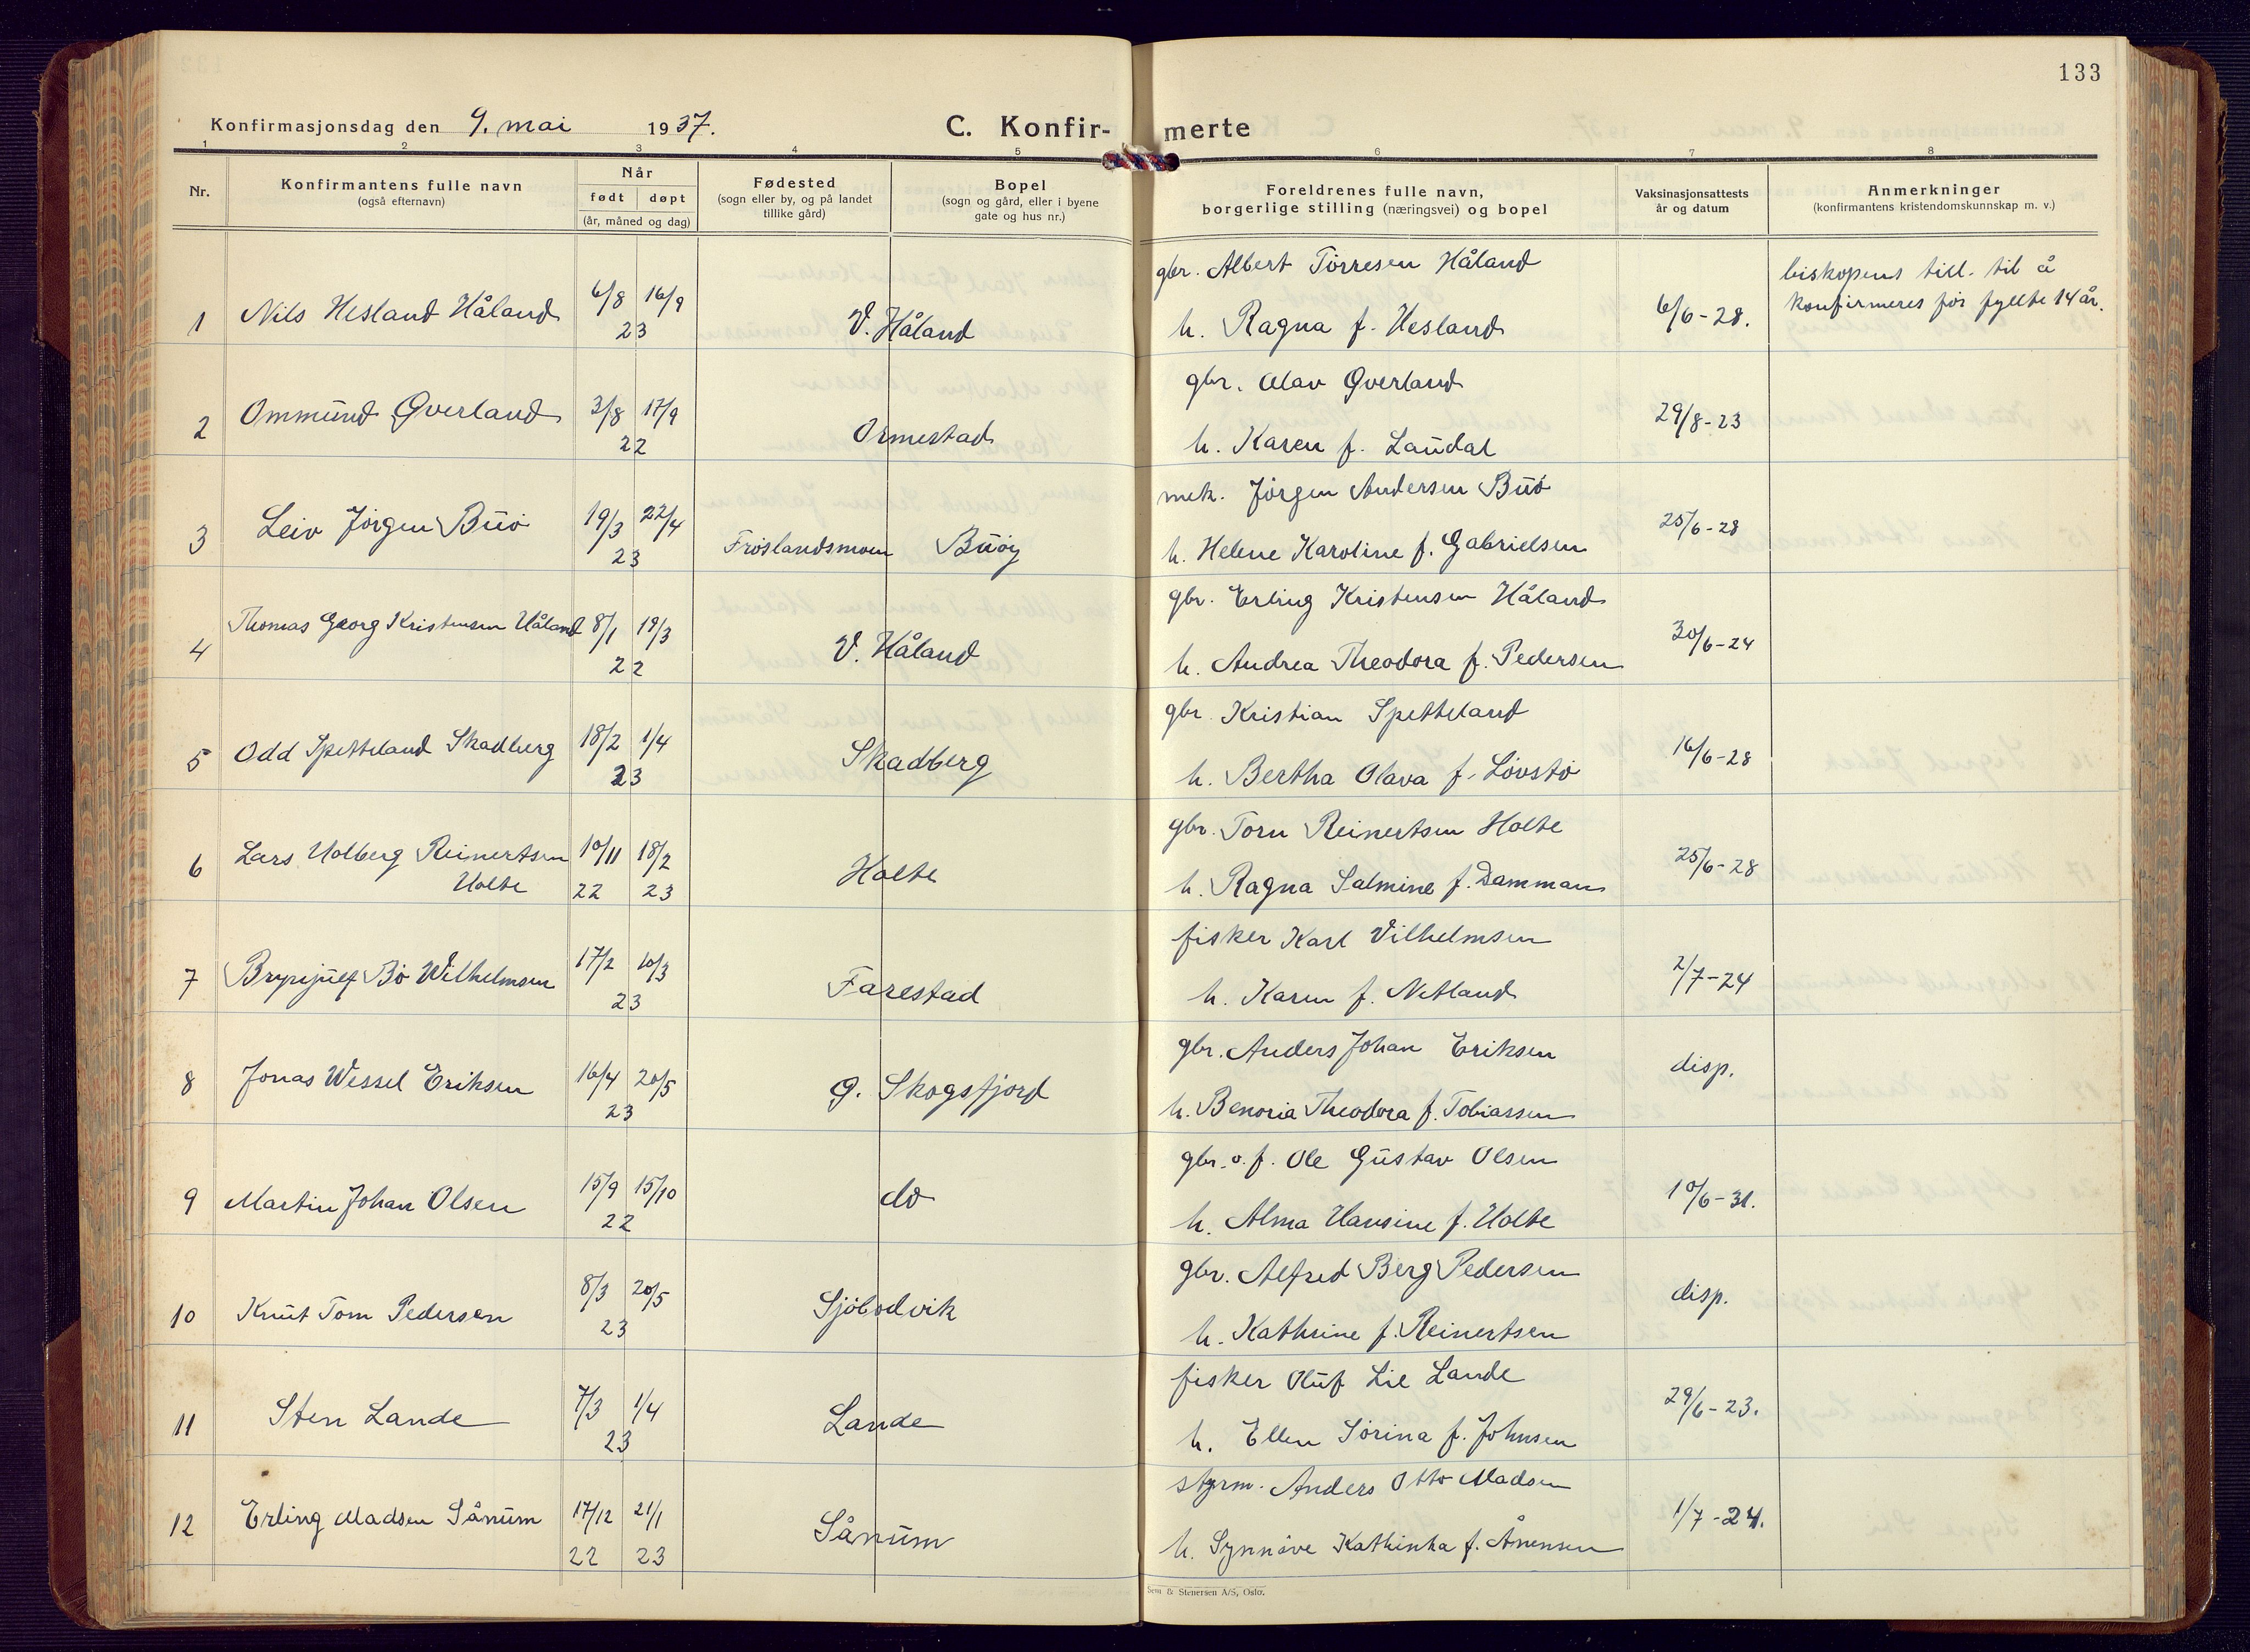 133
Konfirmasjonsdag den 9. mai 1937.
C. Konfir- merte
1 2 3 4 5 6 7 8
Nr.
Konfirmantens fulle navn
(også efternavn)
Når
født døpt
(år, måned og dag)
Fødested
(sogn eller by, og på landet
tillike gård)
Bopel
(sogn og gård, eller i byene
gate og hus nr.)
Foreldrenes fulle navn,
borgerlige stilling (næringsvei) og bopel
Vaksinasjonsattests
år og datum
Anmerkninger
(konfirmantens kristendomskunnskap m. v.)
gbr. Albert Tørresen Håland
biskopens till. til å
konfirmeres før fyllte 14 år.
1 Nils Hesland Håland 6/8 16/9 V. Håland 6/6-28.
23
h. Ragna f. Hesland
gbr. Olav Øverland
2 Ommund Øverland 3/8 17/9 Ormestad 29/8-23
22
h. Karen f. Laudal
mek. Jørgen Andersen Buø
3 Leiv Jørgen Buø 19/3 22/4 Frøslandsmoen Buøy 25/6-28
23
h. Helene Karoline f. Gabrielsen
gbr. Erling Kristensen Håland
4 Thomas Georg Kristensen Håland 8/1 19/3 V. Håland 30/6-24
22
h. Andrea Theodora f. Pedersen
gbr. Kristian Spetteland
5 Odd Spetteland Skadberg 18/2 1/4 Skadberg 16/6-28
23
h. Bertha Olava f. Løvstø
gbr. Torn Reinertsen Holte
6 Lars Holberg Reinertsen 10/11 18/2 Holte 25/6-28
Holte 22 23
h. Ragna Salmine f. Damman
fisker Karl Vilhelmsen
7 Brynjulf Bø Wilhelmsen 17/2 10/3 Farestad 2/7-24
23
h. Karen f. Netland
gbr. Anders Johan Eriksen
8 Jonas Wessel Eriksen 16/4 20/5 Ø. Skogsfjord disp.
23
h. Benoria Theodora f. Tobiassen
gbr. o. f. Ole Gustav Olsen
9 Martin Johan Olsen 15/9 15/10 do 10/6-31.
22
h. Alma Hansine f. Holte
gbr. Alfred Berg Pedersen
10 Knut Tom Pedersen 8/3 20/5 Sjøbodvik disp.
23
h. Kathrine f. Reinertsen
fisker Oluf Lie Lande
11 Sten Lande 7/3 1/4 Lande 29/6-23.
23
h. Ellen Sørina f. Johnsen
styrm. Anders Otto Madsen
12 Erling Madsen Sånum 17/12 21/1 Sånum 1/7-24.
22 23
h. Synnøve Kathinka f. Ånensen
Sem & Stenersen A/S, Oslo.